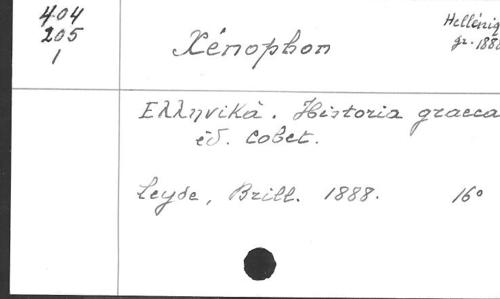 404
205
1
Xénophon
Helléniq
gr. 1888
Ελληνικά. Historia graeca
éd. Cobet.
Leyde, Brill. 1888. 16°